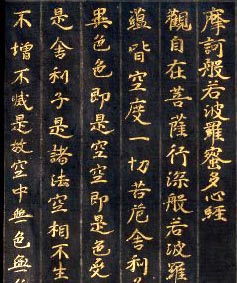 摩訶般若波羅蜜多心經
觀自在菩薩行深般若波羅
蘊皆空度一切苦厄舍利
異色色即是空空即是色受
是舍利子是諸法空相不生
不增不減是故空中無色無